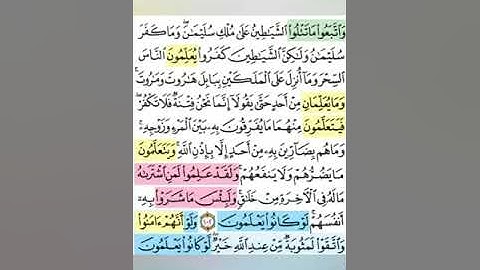 وَاتَّبَعُوا مَا تَتْلُوا الشَّيَاطِينُ عَلَىٰ مُلْكِ سُلَيْمَانَ وَمَا كَفَرَ
سُلَيْمَانُ وَلَٰكِنَّ الشَّيَاطِينَ كَفَرُوا يُعَلِّمُونَ النَّاسَ
السِّحْرَ وَمَا أُنزِلَ عَلَى الْمَلَكَيْنِ بِبَابِلَ هَارُوتَ وَمَارُوتَ
وَمَا يُعَلِّمَانِ مِنْ أَحَدٍ حَتَّىٰ يَقُولَا إِنَّمَا نَحْنُ فِتْنَةٌ فَلَا تَكْفُرْ
فَيَتَعَلَّمُونَ مِنْهُمَا مَا يُفَرِّقُونَ بِهِ بَيْنَ الْمَرْءِ وَزَوْجِهِ
وَمَا هُم بِضَارِّينَ بِهِ مِنْ أَحَدٍ إِلَّا بِإِذْنِ اللَّهِ وَيَتَعَلَّمُونَ
مَا يَضُرُّهُمْ وَلَا يَنفَعُهُمْ وَلَقَدْ عَلِمُوا لَمَنِ اشْتَرَاهُ
مَا لَهُ فِي الْآخِرَةِ مِنْ خَلَاقٍ وَلَبِئْسَ مَا شَرَوْا بِهِ
أَنفُسَهُمْ لَوْ كَانُوا يَعْلَمُونَ ١٠٢ وَلَوْ أَنَّهُمْ ءَامَنُوا
وَاتَّقَوْا لَمَثُوبَةٌ مِّنْ عِندِ اللَّهِ خَيْرٌ لَّوْ كَانُوا يَعْلَمُونَ